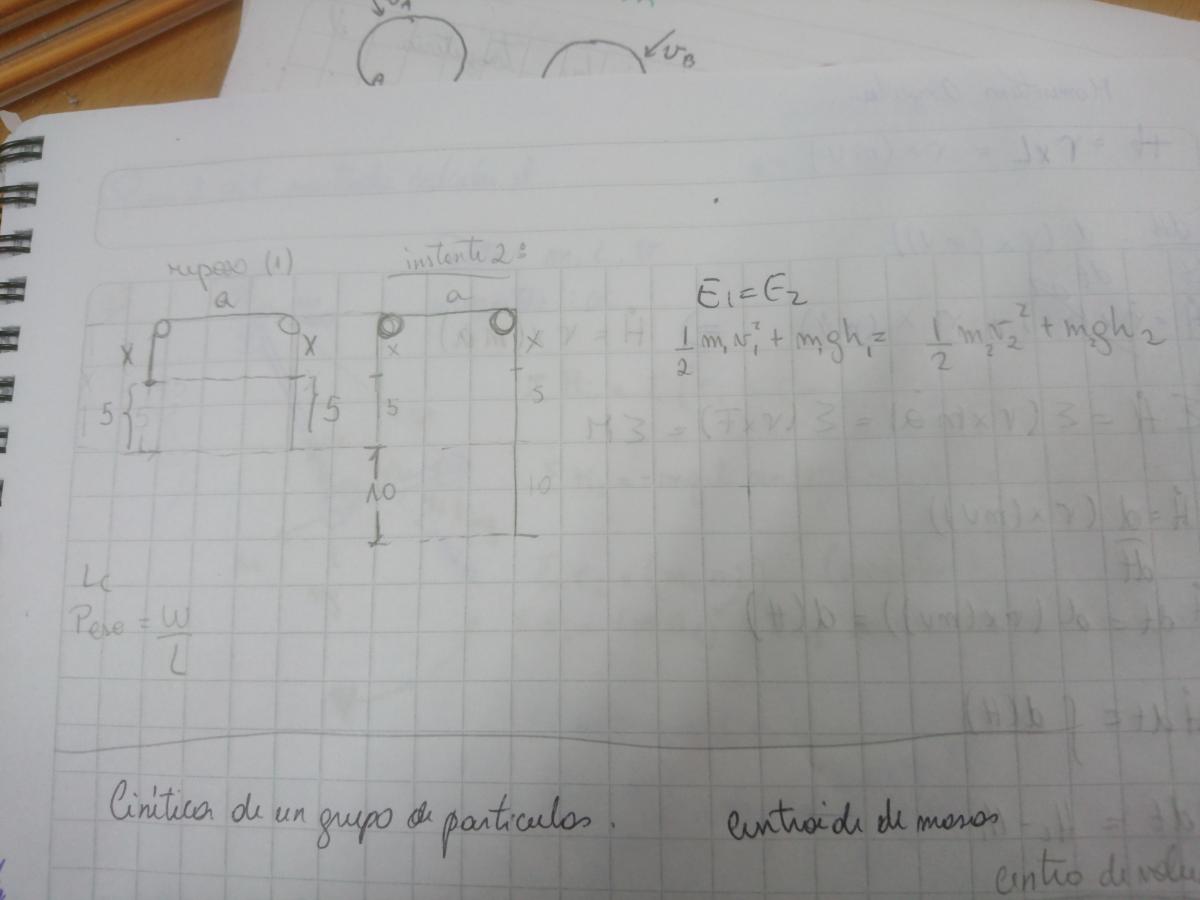 v_A
A
v_B
reposo (1)
instante 2:
a
a
x
x
x
x
5
5
5
5
10
10
E₁ = E₂
1/2 m₁v₁² + m₁gh₁ = 1/2 m₂v₂² + m₂gh₂
Lc
Peso = W/L
Cinética de un grupo de particulas.
centroide de masas
centro de volu